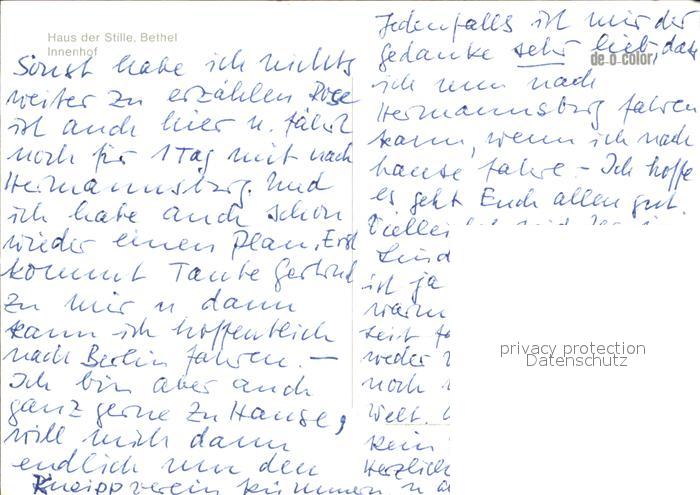 Haus der Stille, Bethel
Innenhof
Sonst habe ich nichts
weiter zu erzählen Rose
ist auch hier u. fährt
noch für 1 Tag mit nach
Hermannsburg. Und
ich habe auch schon
wieder einen Plan. Erst
kommt Tante Gertrud
zu mir u dann
kann ich hoffentlich
nach Berlin fahren. —
Ich bin aber auch
ganz gerne zu Hause,
will mich dann
endlich um den
Kneippverein kümmern
Jedenfalls ist mir der
Gedanke sehr lieb, daß
de o color
ich nun nach
Hermannsburg fahren
kann, wenn ich nach
hause fahre. – Ich hoffe
es geht Euch allen gut.
Sind
ist ja
warm
seit
weder
noch
Welt.
kein
Herzlich
privacy protection
Datenschutz